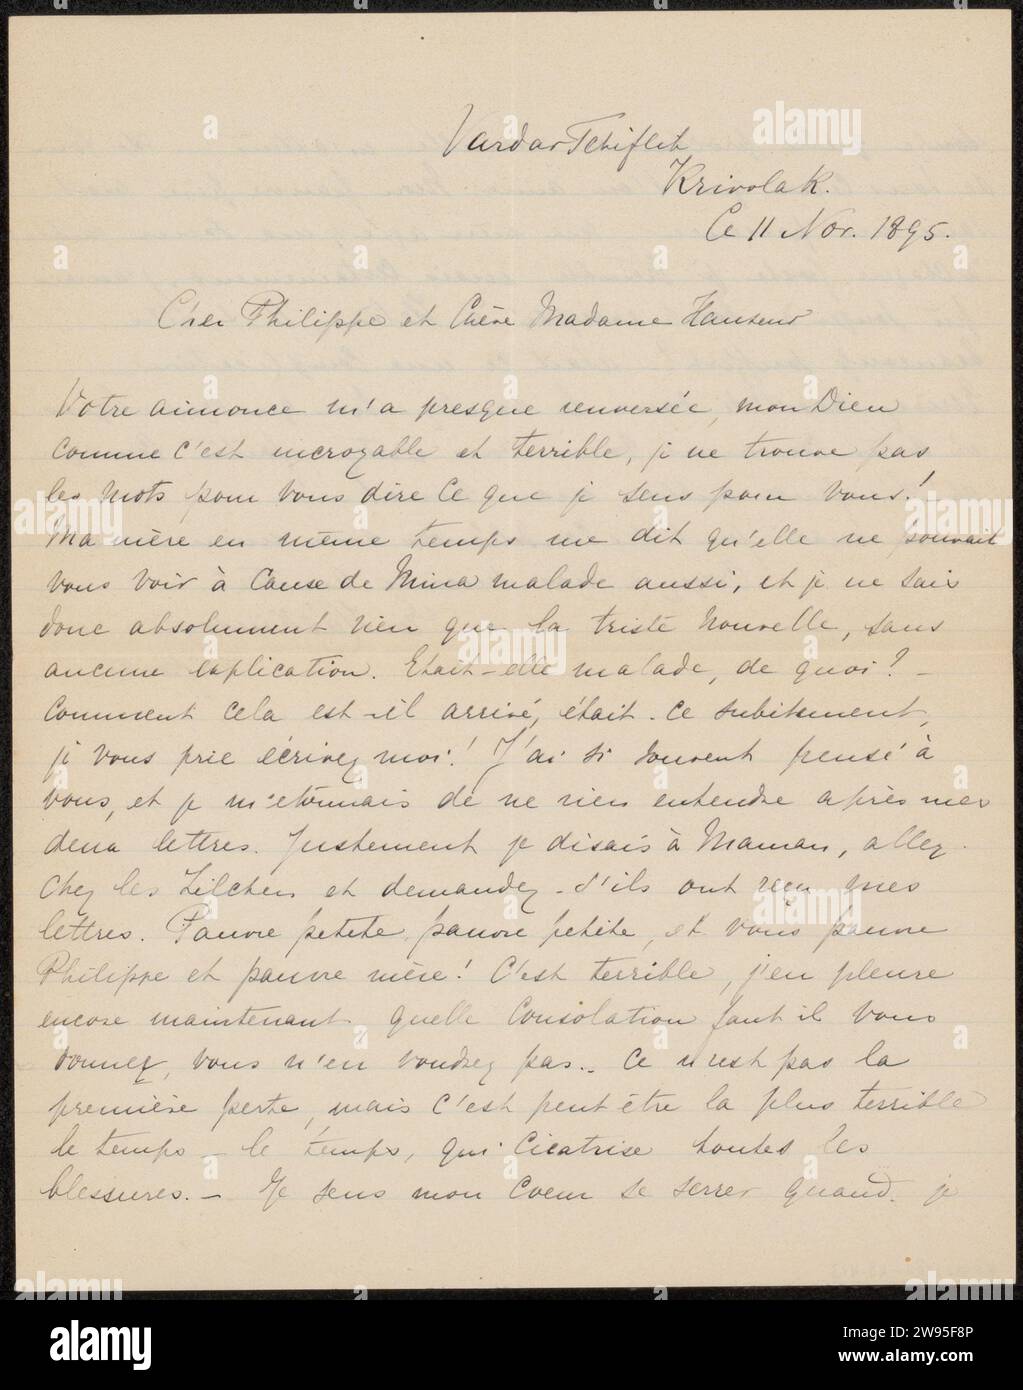 Vardar Tchiflik
Krivolak.
Ce 11 Nov. 1895.
Cher Philippe et Chère Madame
Votre annonce m'a presque renversée, mon Dieu
comme c'est incroyable et terrible, je ne trouve pas
les mots pour vous dire ce que je sens pour vous!
Ma mère en même temps me dit qu'elle ne pouvait
vous voir à cause de Mina malade aussi, et je ne sais
donc absolument rien que la triste nouvelle, sans
aucune explication. Etait-elle malade, de quoi? –
Comment cela est-il arrivé, était-ce subitement,
je vous prie écrivez moi! J'ai si souvent pensé à
vous, et je m'étonnais de ne rien entendre après mes
deux lettres. Justement je disais à Maman, allez
chez les Zilcken et demandez s'ils ont reçu mes
lettres. Pauvre petite, pauvre petite, et vous pauvre
Philippe et pauvre mère! C'est terrible, j'en pleure
encore maintenant quelle consolation faut il vous
donner, vous n'en voudrez pas. Ce n'est pas la
première perte, mais c'est peut être la plus terrible
le temps – le temps, qui cicatrise toutes les
blessures. – Je sens mon coeur se serrer quand je
alamy
alamy
alamy
alamy
alamy
alamy
alamy
alamy
Image ID: 2W95F8P
www.alamy.com